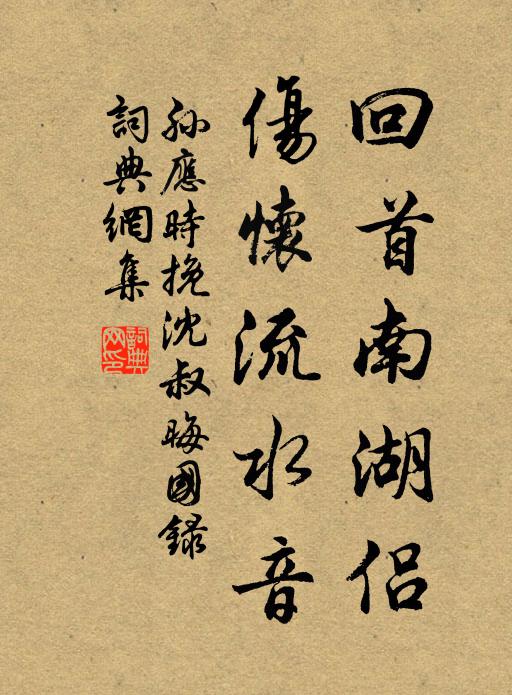 回首南湖侣
傷懷流水音
孫應時挽沈叔晦國錄
詞典網集
詞典网印